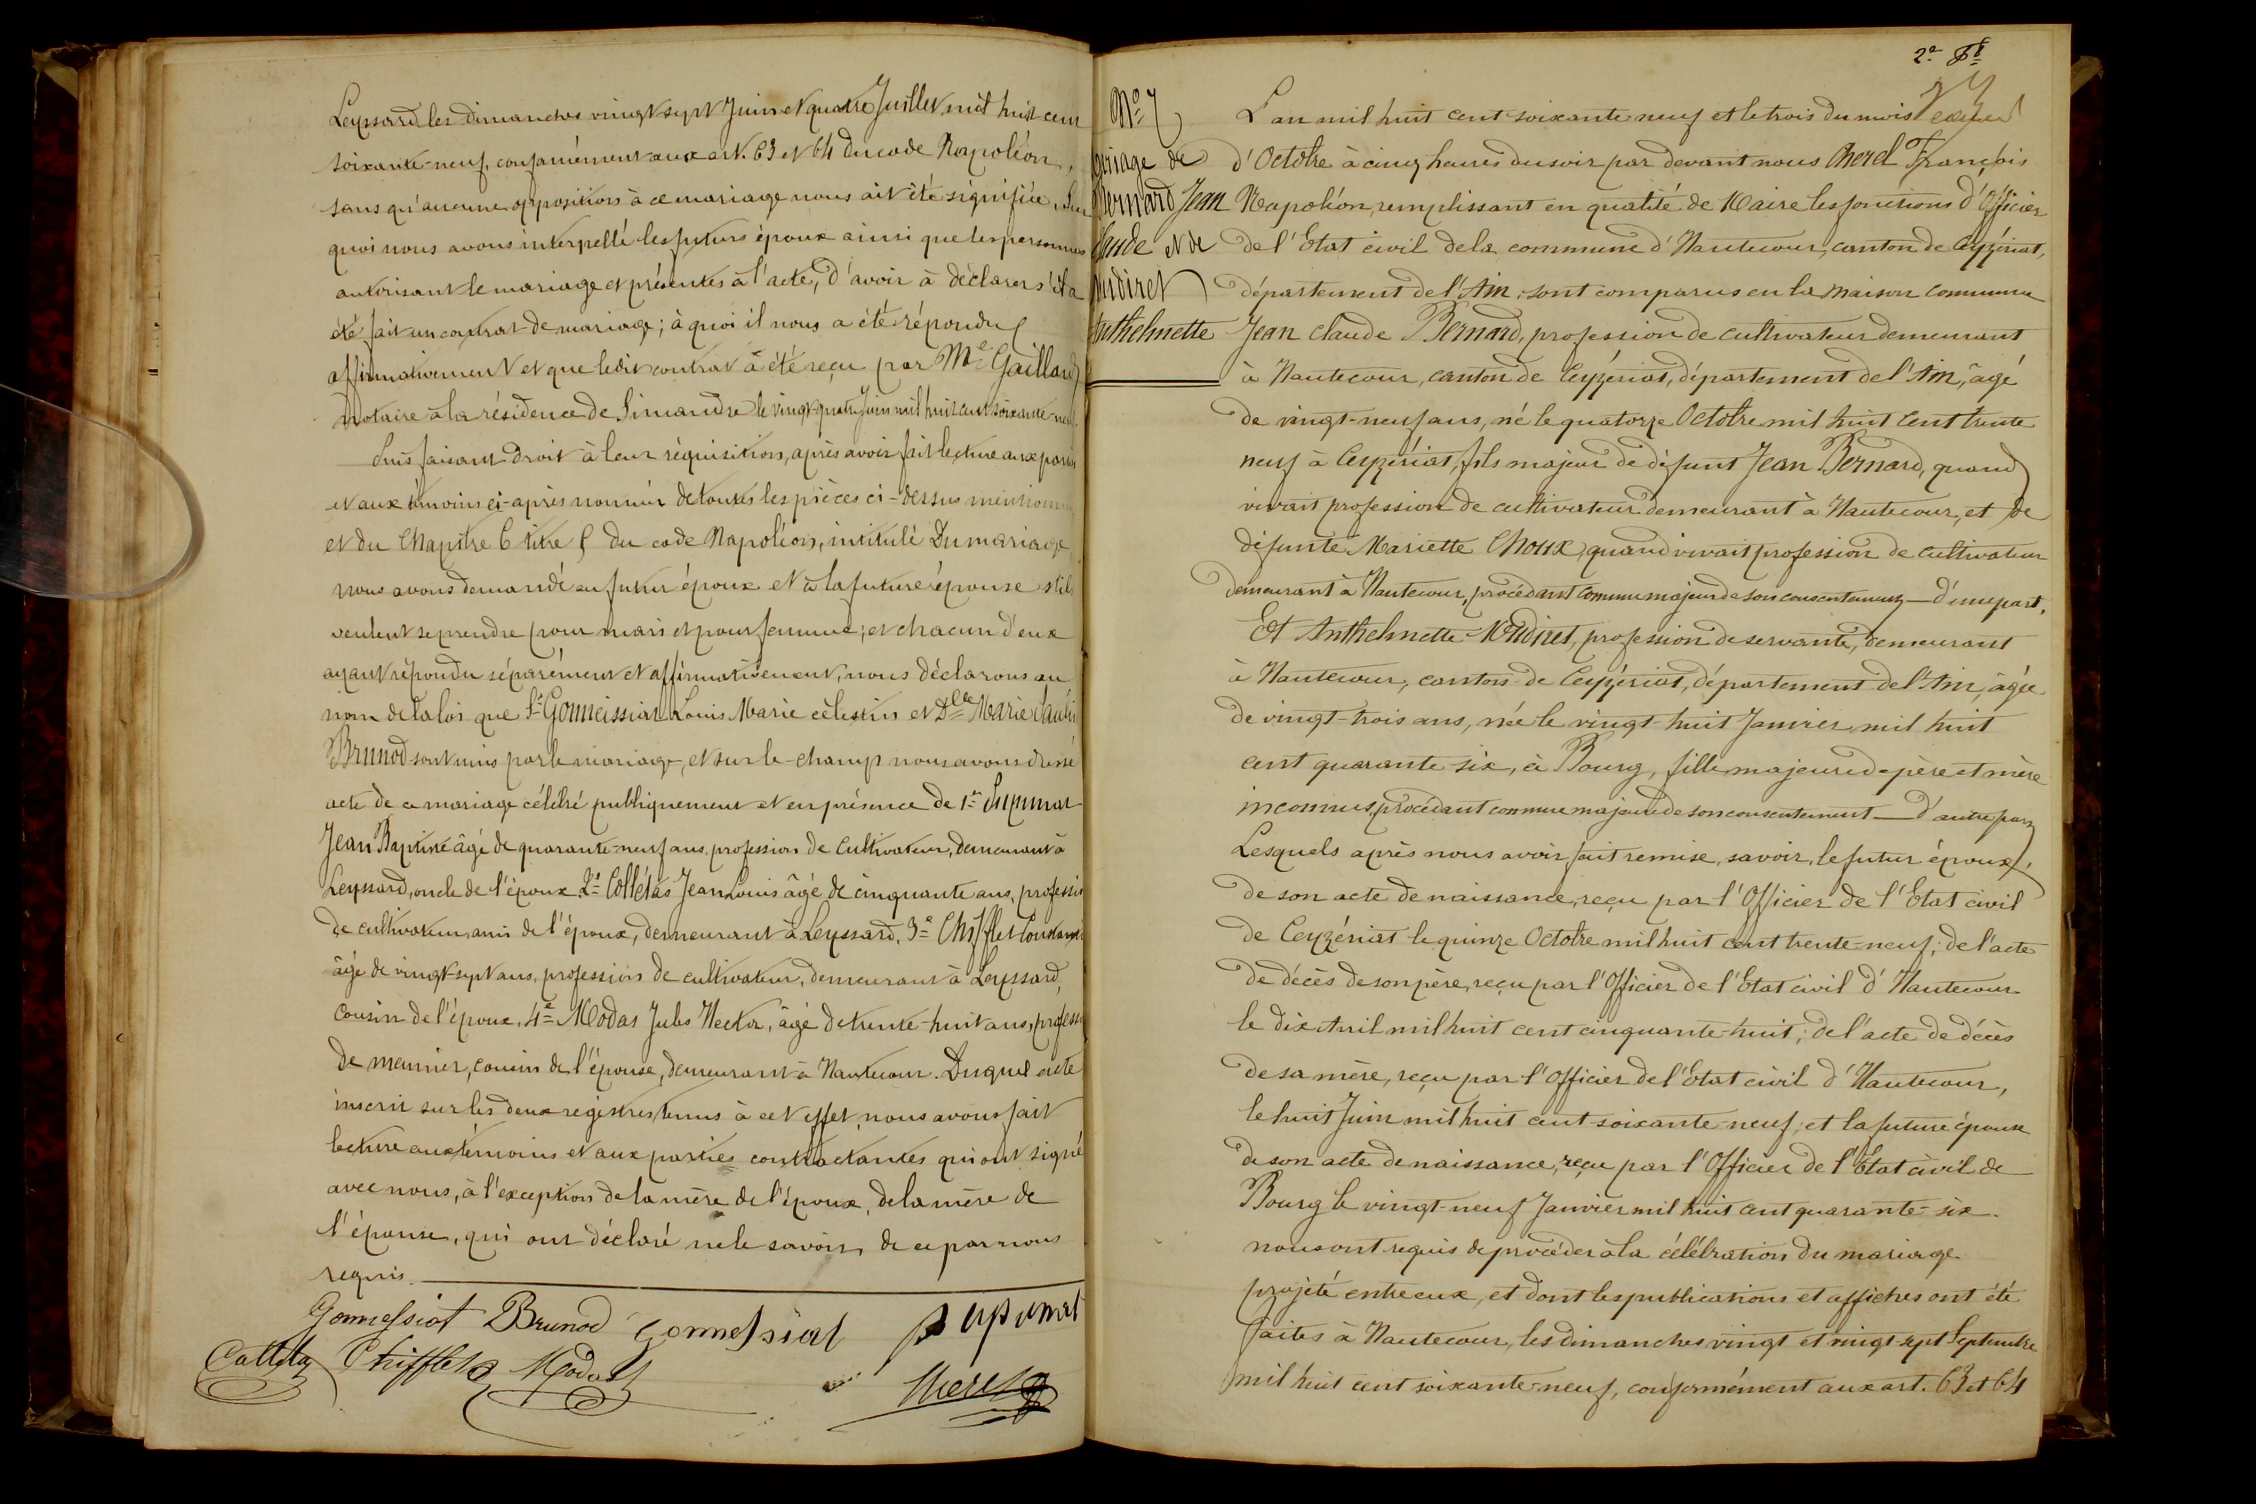 Leyssard les dimanches vingt sept Juin et quatre Juillet mil huit cent
soixante-neuf, conformément aux art. 63 et 64 du code Napoléon,
sans qu'aucune opposition à ce mariage nous ait été signifiée. Sur
quoi nous avons interpellé les futurs époux ainsi que les personnes
autorisant le mariage et présentes à l'acte, d'avoir à déclarer s'il a
été fait un contrat de mariage; à quoi il nous a été répondu
affirmativement et que ledit contrat a été reçu par Me Gaillard
notaire à la résidence de Simandre le vingt-quatre Juin mil huit cent soixante neuf.
Puis faisant droit à leur réquisition, après avoir fait lecture aux parties
et aux témoins ci-après nommés de toutes les pièces ci-dessus mentionn
et du Chapitre 6 titre 5 du code Napoléon, intitulé Du mariage,
nous avons demandé au futur époux et à la future épouse s'ils
veulent se prendre pour mari et pour femme; et chacun d'eux
ayant répondu séparément et affirmativement, nous déclarons au
nom de la loi que Sr Gonnessiat Louis Marie célestin et Dlle Marie Claudi
Brunod sont unis par le mariage, et sur le champ nous avons dressé
acte de ce mariage célébré publiquement et en présence de 1er Supunat
Jean Baptiste âgé de quarante-neuf ans, profession de Cultivateur, demeurant à
Leyssard, oncle de l'époux. 2e Colletas Jean Louis âgé de cinquante ans, professi
de cultivateur, ami de l'époux, demeurant à Leyssard, 3e Chifflet Constant
âgé de vingt-sept ans, profession de cultivateur, demeurant à Leyssard,
Cousin de l'époux, 4e Modas Jules Hector, âgé de trente-huit ans, profess
de meunier, cousin de l'épouse, demeurant à Hautecour. Duquel acte
inscrit sur les deux registres tenus à cet effet, nous avons fait
lecture aux témoins et aux parties contractantes qui ont signé
avec nous, à l'exception de la mère de l'époux, de la mère de
l'épouse, qui ont déclaré ne le savoir, de ce par nous
requis.
Gonnessiat Brunod Gonnessiat Supunat
Colletas Chifflet Modas Cherel
2e ft
No 7
ariage de
Bernard Jean
Claude et de
Mudiret
Anthelmette
L'an mil huit cent soixante neuf et le trois du mois
d'Octobre à cinq heures du soir par devant nous Cherel François
Napoléon, remplissant en qualité de Maire les fonctions d'Officier
de l'Etat civil de la commune d'Hautecour, canton de Ceyzériat,
département de l'Ain, sont comparus en la maison commune
Jean Claude Bernard, profession de cultivateur demeurant
à Hautecour, canton de Ceyzériat, département de l'Ain, âgé
de vingt-neuf ans, né le quatorze Octobre mil huit cent trente
neuf à Ceyzériat, fils majeur de défunt Jean Bernard, quand
vivait profession de cultivateur demeurant à Hautecour, et de
défunte Mariette Choux, quand vivait profession de cultivateur
demeurant à Hautecour, procédant comme majeur de son consentement — d'une part,
Et Anthelmette Mudiret, profession de servante, demeurant
à Hautecour, canton de Ceyzériat, département de l'Ain, âgée
de vingt-trois ans, née le vingt-huit Janvier mil huit
cent quarante-six, à Bourg, fille majeure de père et mère
inconnus, procédant comme majeure de son consentement — d'autre part
Lesquels après nous avoir fait remise, savoir, le futur époux,
de son acte de naissance, reçu par l'Officier de l'Etat civil
de Ceyzériat le quinze Octobre mil huit cent trente-neuf; de l'acte
de décès de son père, reçu par l'Officier de l'Etat civil d'Hautecour
le dix Avril mil huit cent cinquante-huit; de l'acte de décès
de sa mère, reçu par l'Officier de l'Etat civil d'Hautecour,
le huit Juin mil huit cent soixante-neuf; et la future épouse
de son acte de naissance, reçu par l'Officier de l'Etat civil de
Bourg le vingt-neuf Janvier mil huit cent quarante-six.
nous ont requis de procéder à la célébration du mariage
projeté entre eux, et dont les publications et affiches ont été
faites à Hautecour, les dimanches vingt et vingt sept Septembre
mil huit cent soixante-neuf, conformément aux art. 63 et 64